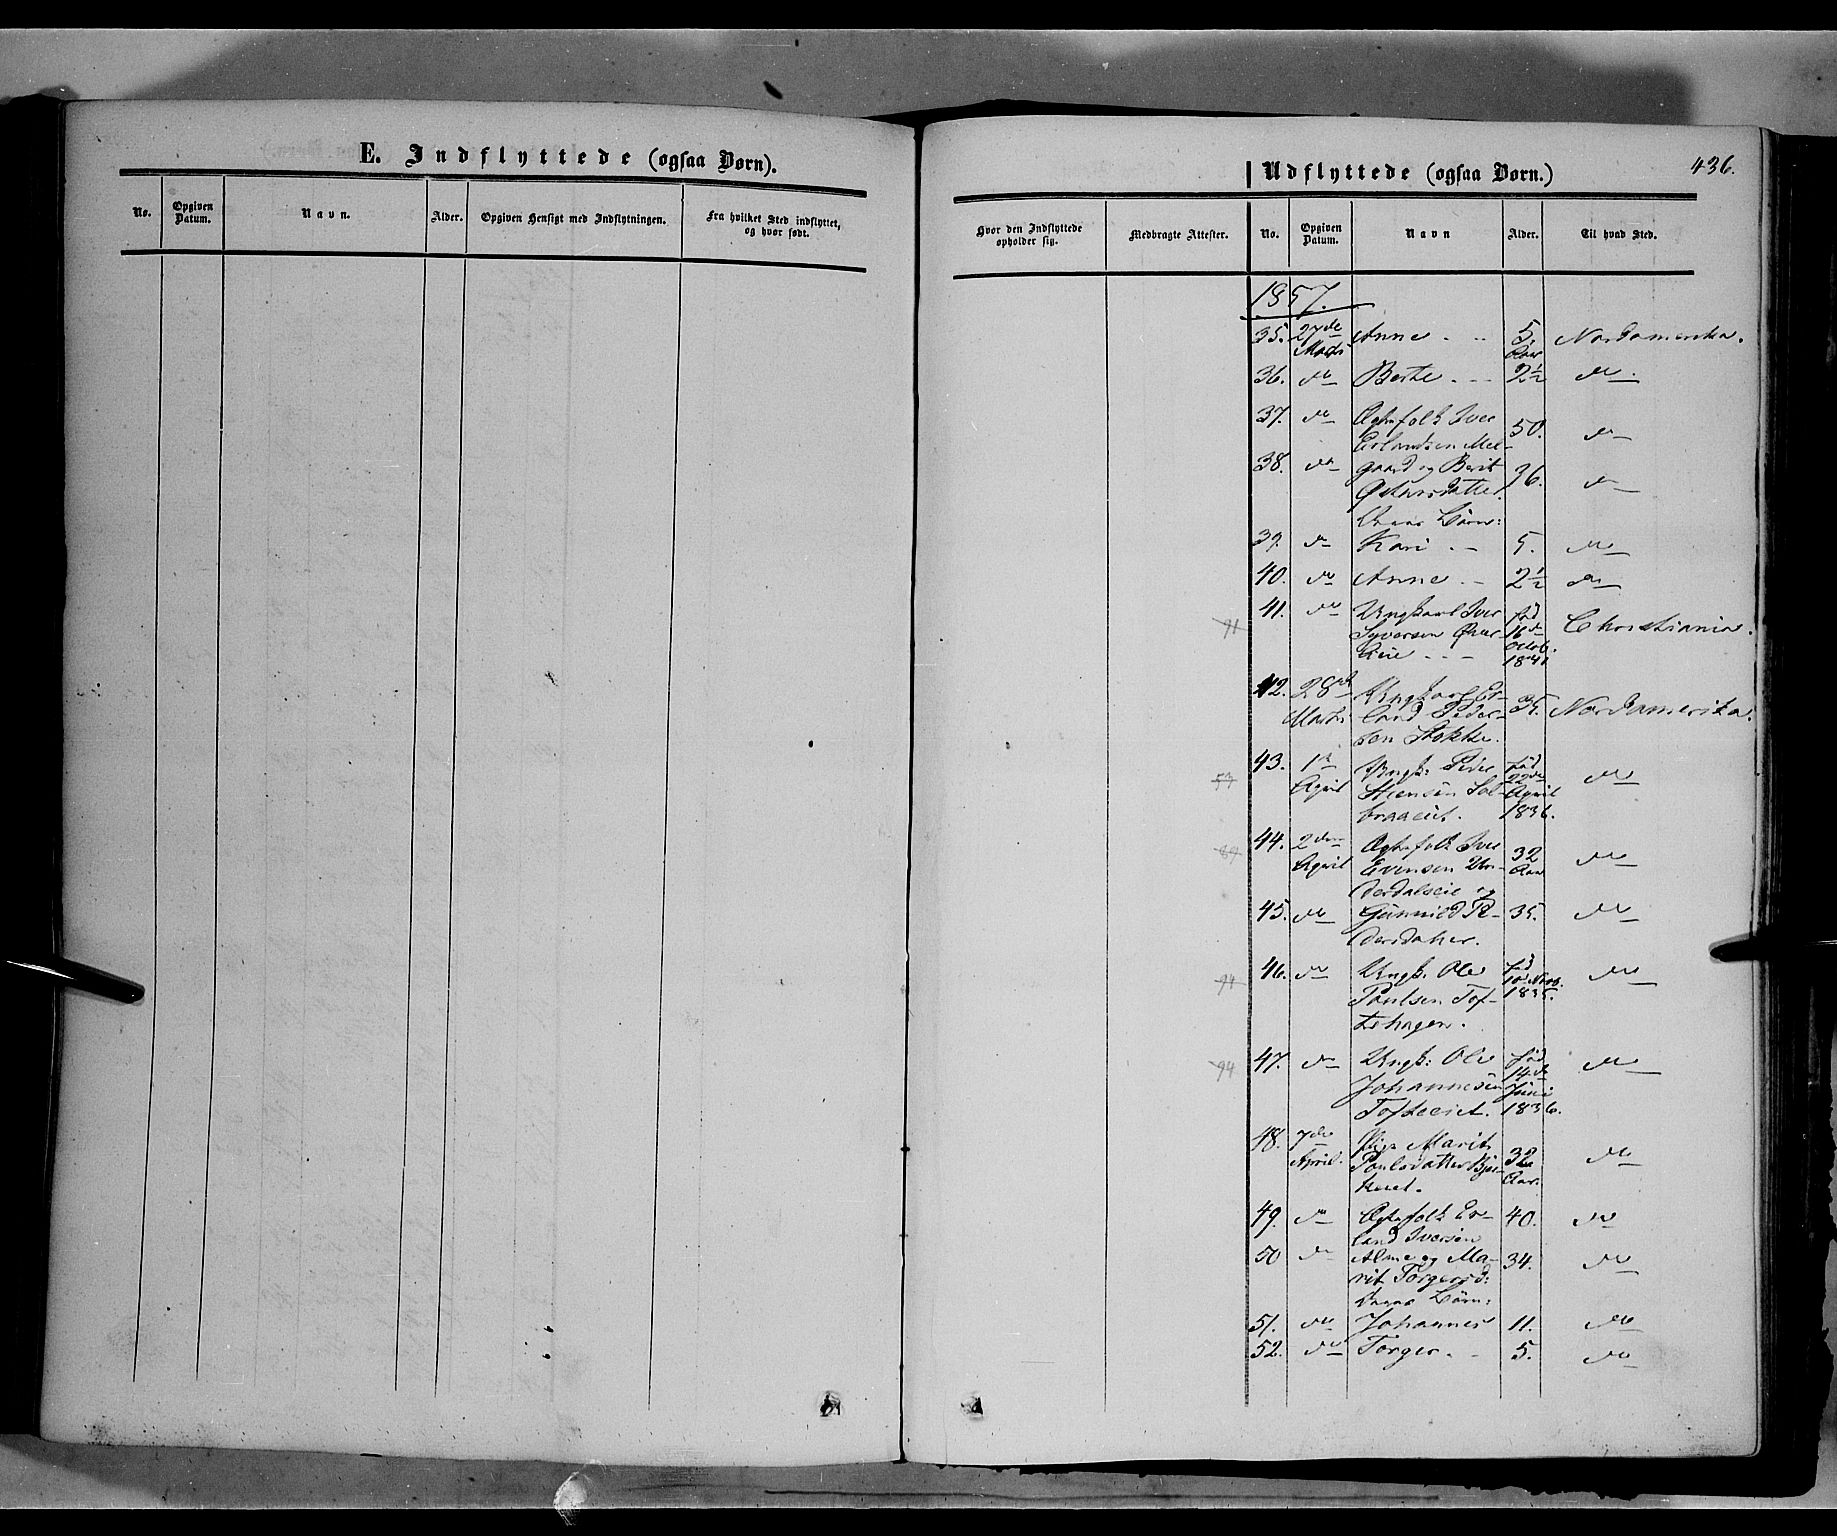 E. Indflyttede (ogsaa Børn).
No. Opgiven Datum. Navn. Alder. Opgiven Hensigt med Indflytningen. Fra hvilket Sted indflyttet, og hvor født.
Udflyttede (ogsaa Børn.)
436.
Hvor den Indflyttede opholder sig. Medbragte Attester. No. Opgiven Datum. Navn Alder. Til hvad Sted.
1857.
35. 27de Marts Anne 5. Aar Nordamerika.
36. do Berte 2½ do
37. do Ægtefolk Iver
Erlandsen Mel- 50. do
38. do gaard og Berit 36. do
Deres Børn:
39. do Kari 5. do
40. do Anne 2½ do
71
41. do Ungkarl Iver fød
Syversen Øver- 16de Christiania.
eie Octob.
42. 28de Ungkarl Er-
Marts land Peder- 35. Nordamerika.
sen Stokke.
53
43. 1ste Ungk: Peder fød
April Steensen Sol- 22de April do
braaeiet. 1836.
89
44. 2den Ægtefolk Iver 32
April Evensen Un- Aar do
derdalseie og
45. do Gunnild Pe- 35. do
dersdatter.
94
46. do Ungk. Ole fød
Paulsen Tof- 10de Novb. 1835. do
tehagen.
94
47. do Ungk: Ole fød
Johannesen 14de Juni do
Tofteeiet. 1836.
48. 7de Pige Marit
April. Paulsdatter Bjør- 32 Aar. do
keeiet.
49. do Ægtefolk Er- 40. do
land Iversen
50 do Alme og Ma- 34. do
rit Torgersd:
deres Børn:
51. do Johannes 11. do
52. do Torger 5. do